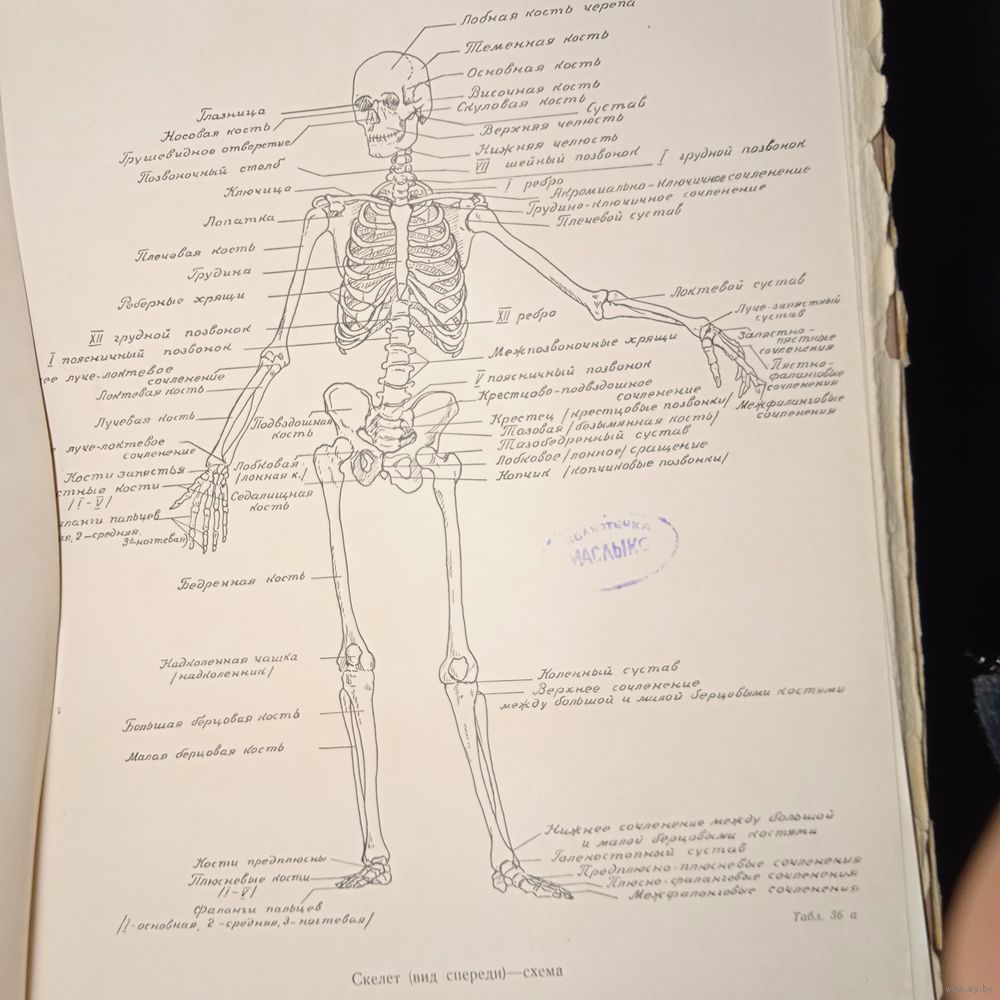 Лобная кость черепа
Теменная кость
Основная кость
Височная кость
Скуловая кость
Сустав
Верхняя челюсть
Нижняя челюсть
VII шейный позвонок
I грудной позвонок
I ребро
Акромиально-ключичное сочленение
Грудино-ключичное сочленение
Плечевой сустав
Глазница
Носовая кость
Грушевидное отверстие
Позвоночный столб
Ключица
Лопатка
Плечевая кость
Грудина
Реберные хрящи
XII грудной позвонок
I поясничный позвонок
ее луче-локтевое
сочленение
Локтевая кость
Лучевая кость
луче-локтевое
сочленение
Кости запястья
стные кости
/I-V/
аланги пальцев
ая, 2-средняя,
3-ногтевая/
Подвздошная
кость
Лобковая
/лонная к./
Седалищная
кость
Локтевой сустав
Луче-запястный
сустав
Запястно-
пястные
сочленения
Пястно-
фаланговые
сочленения
Межфаланговые
сочленения
XII ребро
Межпозвоночные хрящи
V поясничный позвонок
Крестцово-подвздошное
сочленение
Крестец /крестцовые позвонки/
Тазовая /безымянная кость/
Тазобедренный сустав
Лобковое /лонное/ сращение
Копчик /копчиковые позвонки/
МАСЛЫКО
Бедренная кость
Надколенная чашка
/надколенник/
Большая берцовая кость
Малая берцовая кость
Коленный сустав
Верхнее сочленение
между большой и малой берцовыми костями
Кости предплюсны
Плюсневые кости
/I-V/
Фаланги пальцев
/I-основная, 2-средняя, 3-ногтевая/
Нижнее сочленение между большой
и малой берцовыми костями
Голеностопный сустав
Предплюсно-плюсневые сочленения
Плюсно-фаланговые сочленения
Межфаланговые сочленения
Табл. 36 а
Скелет (вид спереди)—схема
www.ay.by